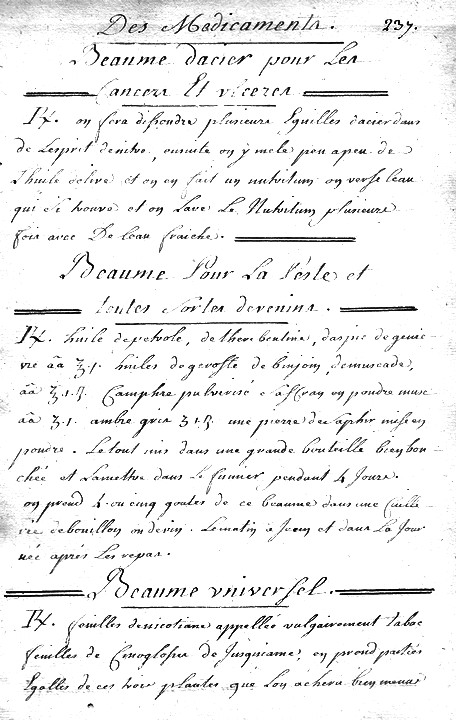 Des Medicaments. 237.
Beaume dacier pour Les
Cancers Et vlceres
℞. on fera dissoudre plusieurs Eguilles dacier dans
de Lesprit denitre, ensuite on y mele peu apeu de
Lhuile dolive et on en fait un nutritum on verse leau
qui si trouve et on Lave Le Nutritum plusieurs
fois avec De leau fraiche.
Beaume Pour La Peste et
toutes sortes devenins.
℞. huile depetrole, de therebentine, daspic de genie-
vre āā ʒ.j. huiles degerofle de binjoin, demuscade,
āā ʒ.j.ß. Camphre pulverisé saffran en poudre musc
āā ʒ.j. ambre gris ʒ.j.ß. une pierre desaphir mise en
poudre. Le tout mis dans une grande bouteille bien bou-
chée et Lamettre dans Le fumier pendant 4 Jours.
on prend 4. ou cinq goutes de ce beaume dans une Cuille-
rée debouillon ou devin. Lematin a Jeun et dans La Jour
née apres Les repas.
Beaume vniversel.
℞. feuilles denicotiane appellée vulgairement tabac
feuilles de Cinoglosse de Jusquiame, on prend parties
Egalles de ces trois plantes que Lon achera bien menus